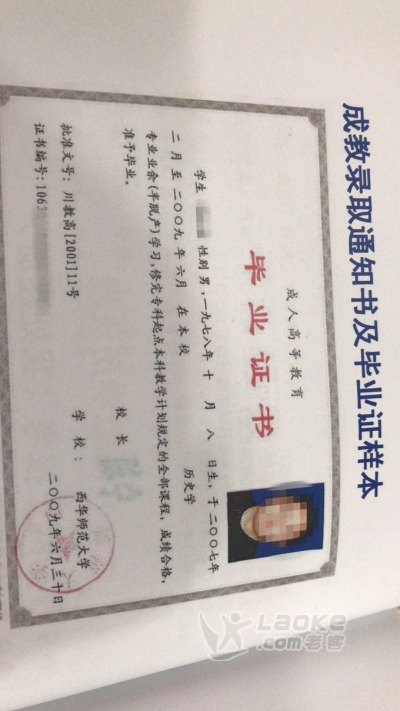 成教录取通知书及毕业证样本
成人高等教育
毕业证书
学生 性别 男,一九七八年十月八日生,于二〇〇七年
二月至二〇〇九年六月在本校 历史学
专业业余(半脱产)学习,修完专科起点本科教学计划规定的全部课程,成绩合格,
准予毕业。
校长
批准文号:川教高[2001]11号
学校:西华师范大学
证书编号:1063
二〇〇九年六月三十日
LAOKE
.com老客